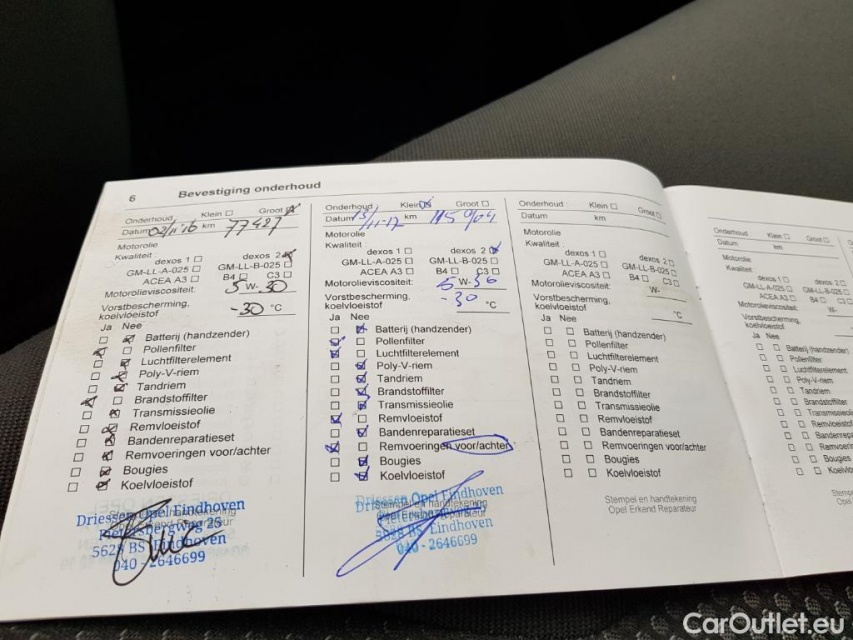 6 Bevestiging onderhoud
Onderhoud Klein Groot
Datum 02/11-16 km 77427
Motorolie
Kwaliteit dexos 1 dexos 2
GM-LL-A-025 GM-LL-B-025
ACEA A3 B4 C3
Motorolieviscositeit: 5 W- 30
Vorstbescherming,
koelvloeistof -30 °C
Ja Nee
Batterij (handzender)
Pollenfilter
Luchtfilterelement
Poly-V-riem
Tandriem
Brandstoffilter
Transmissieolie
Remvloeistof
Bandenreparatieset
Remvoeringen voor/achter
Bougies
Koelvloeistof
Stempel en handtekening
Opel Erkend Reparateur
Driessen Opel Eindhoven
Pietersbergweg 25
5628 BS Eindhoven
040 - 2646699
Onderhoud Klein Groot
Datum 13/11-17 km
Motorolie
Kwaliteit dexos 1 dexos 2
GM-LL-A-025 GM-LL-B-025
ACEA A3 B4 C3
Motorolieviscositeit: 5 W- 30
Vorstbescherming,
koelvloeistof -30 °C
Ja Nee
Batterij (handzender)
Pollenfilter
Luchtfilterelement
Poly-V-riem
Tandriem
Brandstoffilter
Transmissieolie
Remvloeistof
Bandenreparatieset
Remvoeringen voor/achter
Bougies
Koelvloeistof
Stempel en handtekening
Driessen Opel Eindhoven
5628 BS Eindhoven
040 - 2646699
Onderhoud Klein Groot
Datum km
Motorolie
Kwaliteit dexos 1 dexos 2
GM-LL-A-025 GM-LL-B-025
ACEA A3 B4 C3
Motorolieviscositeit: W-
Vorstbescherming,
koelvloeistof °C
Ja Nee
Batterij (handzender)
Pollenfilter
Luchtfilterelement
Poly-V-riem
Tandriem
Brandstoffilter
Transmissieolie
Remvloeistof
Bandenreparatieset
Remvoeringen voor/achter
Bougies
Koelvloeistof
Stempel en handtekening
Opel Erkend Reparateur
Onderhoud Klein Groot
Datum km
Motorolie
Kwaliteit
dexos 1 dexos 2
GM-LL-A-025 GM-LL-B-025
ACEA A3 B4 C3
Motorolieviscositeit: W-
Vorstbescherming,
koelvloeistof
Ja Nee
Batterij (handzender)
Pollenfilter
Luchtfilterelement
Poly-V-riem
Tandriem
Brandstoffilter
Transmissieoli
Remvloeistof
Bandenrepara
Remvoeringe
Bougies
Koelvloeis
Stempe
Opel
CarOutlet.eu